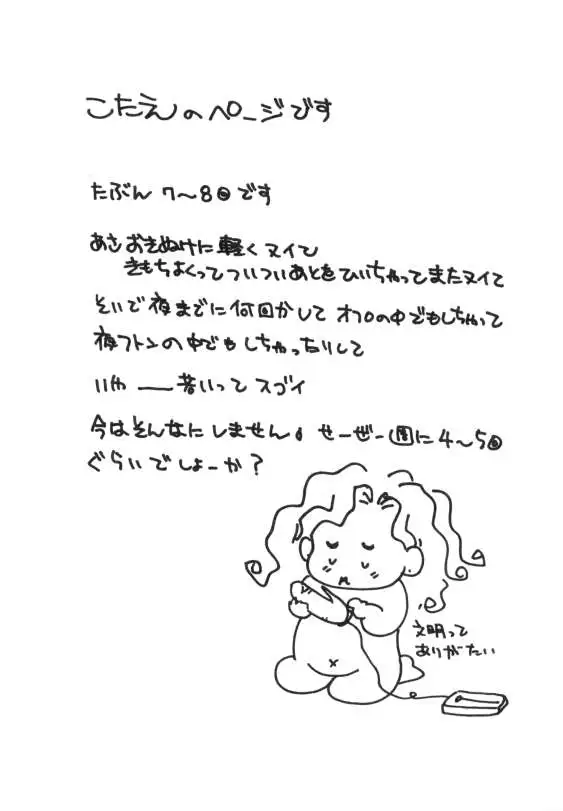 こたえのページです
たぶん 7〜8回です
あさおきぬけに軽くヌイて
きもちよくってついついあとをひいちゃってまたヌイて
そいで夜までに何回かして オフロの中でもしちゃって
夜フトンの中でもしちゃったりして
いやー昔いってスゴイ
今はそんなにしません。せーぜー週に4〜5回
ぐらいでしょーか？
文明って
ありがたい